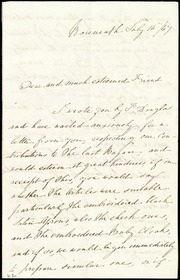 Roseneath July 16 /47
Dear and much esteemed Friend
I wrote you by F. Douglas
and have waited anxiously for a
letter from you, respecting our con
tributions to the last Bazaar, and
would esteem it great kindness if on
receipt of this, you would say
whether the articles were suitable
particularly the embroidered black
Satin Aprons, also the check ones,
and the embroidered Baby Cloak,
and if so, we would begin immediately
to prepare similar ones, or if